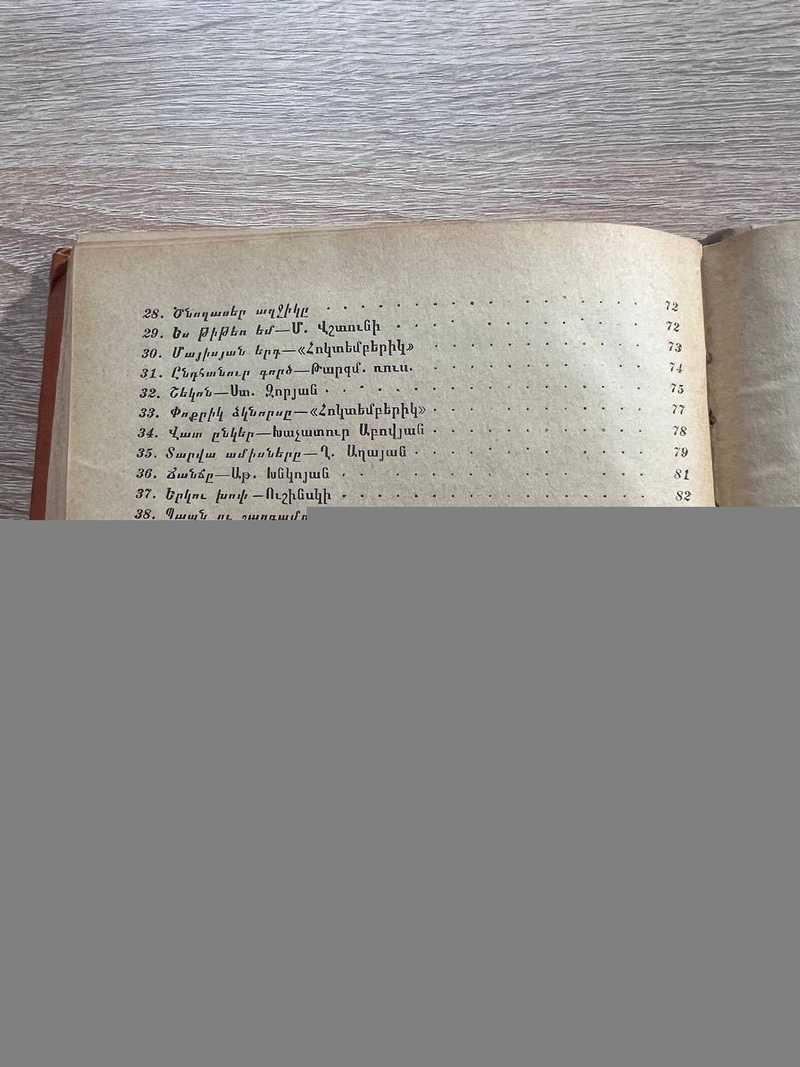 28. Ծնողասեր աղջիկը 72
29. Ես թիթեռ եմ—Մ. Վշտունի 72
30. Մայիսյան երգ—«Հոկտեմբերիկ» 73
31. Ընդհանուր գործ—Թարգմ. ռուս. 74
32. Շեկոն—Ստ. Զորյան 75
33. Փոքրիկ ձկնորսը—«Հոկտեմբերիկ» 77
34. Վատ ընկեր—Խաչատուր Աբովյան 78
35. Տարվա ամիսները—Ղ. Աղայան 79
36. Ճանճը—Աթ. Խնկոյան 81
37. Երկու խոփ—Ուշինսկի 82
38. Պապն ու շաղգամը